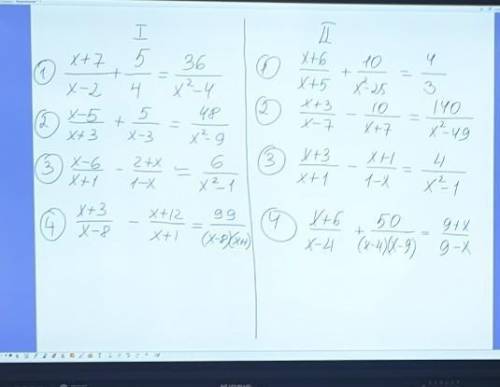 I
① (x+7)/(x-2) + 5/4 = 36/(x²-4)
② (x-5)/(x+3) + 5/(x-3) = 48/(x²-9)
③ (x-6)/(x+1) - (2+x)/(1-x) = 6/(x²-1)
④ (x+3)/(x-8) - (x+12)/(x+1) = 99/((x-8)(x+1))
II
① (x+6)/(x+5) + 10/(x²-25) = 4/3
② (x+3)/(x-7) - 10/(x+7) = 140/(x²-49)
③ (x+3)/(x+1) - (x+1)/(1-x) = 4/(x²-1)
④ (x+6)/(x-4) + 50/((x-4)(x-9)) = (9+x)/(9-x)